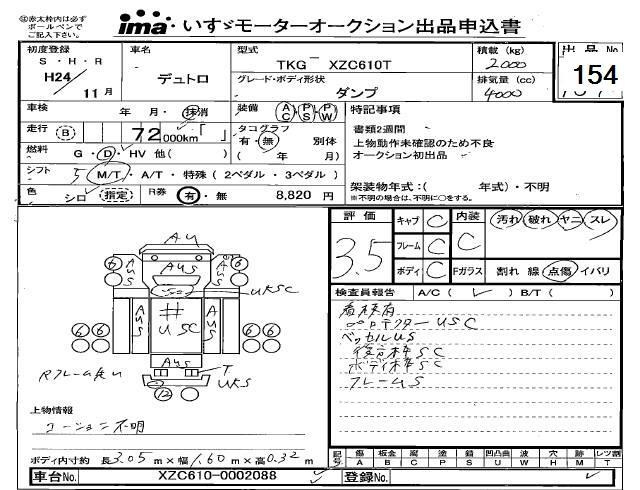 ㊟赤太枠内は必ず
ボールペンで
ご記入下さい。
ima・いすゞモーターオークション出品申込書
初度登録 車名 型式 積載 (kg) 出品 No
S・H・R デュトロ TKG XZC610T 2000 154
H24 グレード・ボディ形状 排気量 (cc)
11月 ダンプ 4000
車検 年 月・抹消 装備 AC PS PW 特記事項
走行 B 72,000km 「 」 タコグラフ 書類2週間
有・無 別体 上物動作未確認のため不良
燃料 G・D・HV 他( ) ( 年 月) オークション初出品
シフト 5 M/T・A/T・特殊 (2ペダル・3ペダル)
架装物年式:( 年式)・不明
色 シロ 指定 R券 有・無 8,820 円 ※不明の場合は、不明に○をする。
評価 キャブ C 内装 汚れ 破れ ヤニ スレ
3.5 フレーム C C
ボディ C Fガラス 割れ 線 点傷 イバリ
検査員報告 A/C ( ✓ ) B/T ( )
AU
6 AUS AUS AUS 6
UKSC
#
USC
AUS AUS
6 6 6 6
AUS
T
UKS
12
プロテクターUSC
ベッセルUS
ボディ枠SC
フレームS
上物情報
コーション不明
ボディ内寸約 長3.05m×幅1.60m×高0.32m
記号 傷 板金 腐 塗 錆 凹凸曲 波 穴 跡 レツ割
A B C P S U W H M T
車台No. XZC610-0002088 登録No.